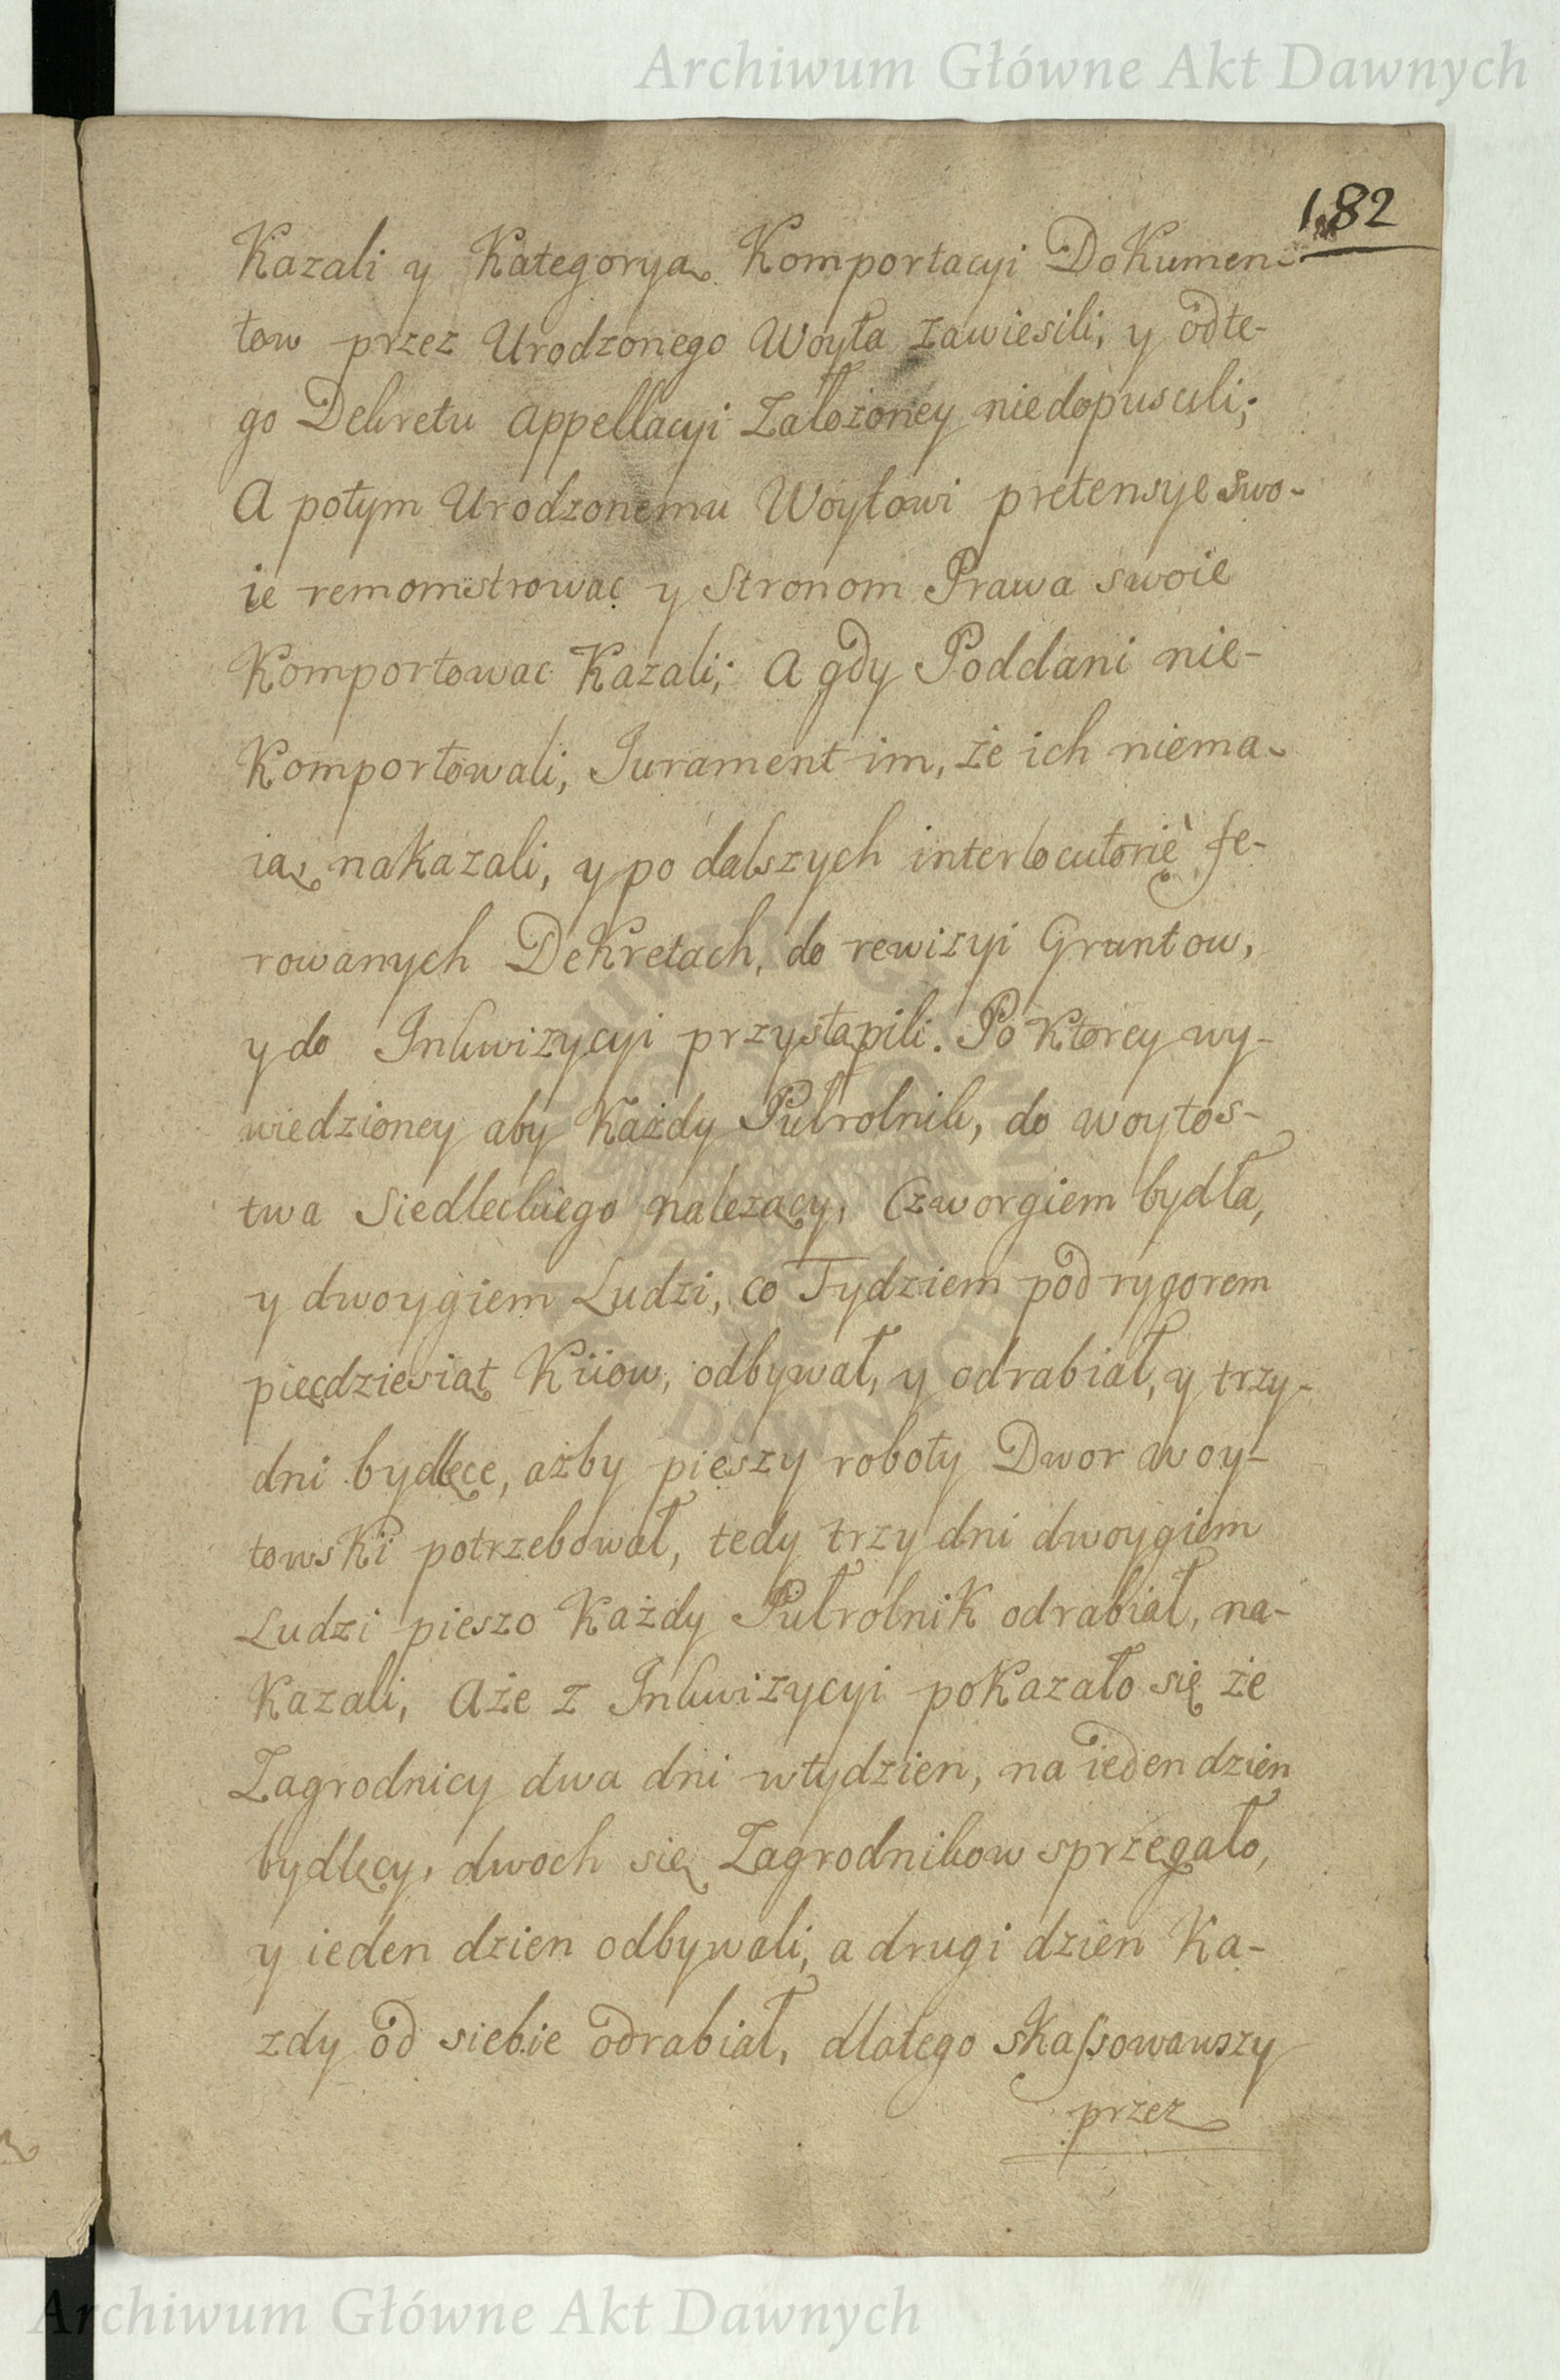 Archiwum Główne Akt Dawnych
182
Kazali y Kategoryą Komportacyi Dokumen-
tow przez Urodzonego Woyta zawiesili, y odte-
go Dekretu appellacyi Załozoney niedopuscili;
A potym Urodzonemu Woytowi pretensye swo-
ie remonstrowac y Stronom Prawa swoie
Komportowac Kazali; A gdy Poddani nie-
Komportowali, Jurament im, że ich niema-
ią, nakazali, y po dalszych interlocutoriè fe-
rowanych Dekretach, do rewizyi Gruntow,
y do Inkwizycyi przystąpili. Po Ktorey wy-
wiedzioney aby Każdy Pułrolnik, do woytos-
twa Siedleckiego należący, Czworgiem bydła,
y dwoygiem Ludzi, co Tydziem pod rygorem
pięcdziesiąt Kiiow, odbywał, y odrabiał, y trzy-
dni bydlęce, ażby pieszy roboty Dwor woy-
towski potrzebował, tedy trzy dni dwoygiem
Ludzi pieszo Każdy Pułrolnik odrabiał, na-
kazali, Aże z Inkwizycyi pokazało się że
Zagrodnicy dwa dni wtydzien, na ieden dzien
bydlęcy, dwoch się Zagrodnikow sprzęgało,
y ieden dzien odbywali, a drugi dzien Ka-
zdy od siebie odrabiał, dlatego skassowawszy
przez
Archiwum Główne Akt Dawnych